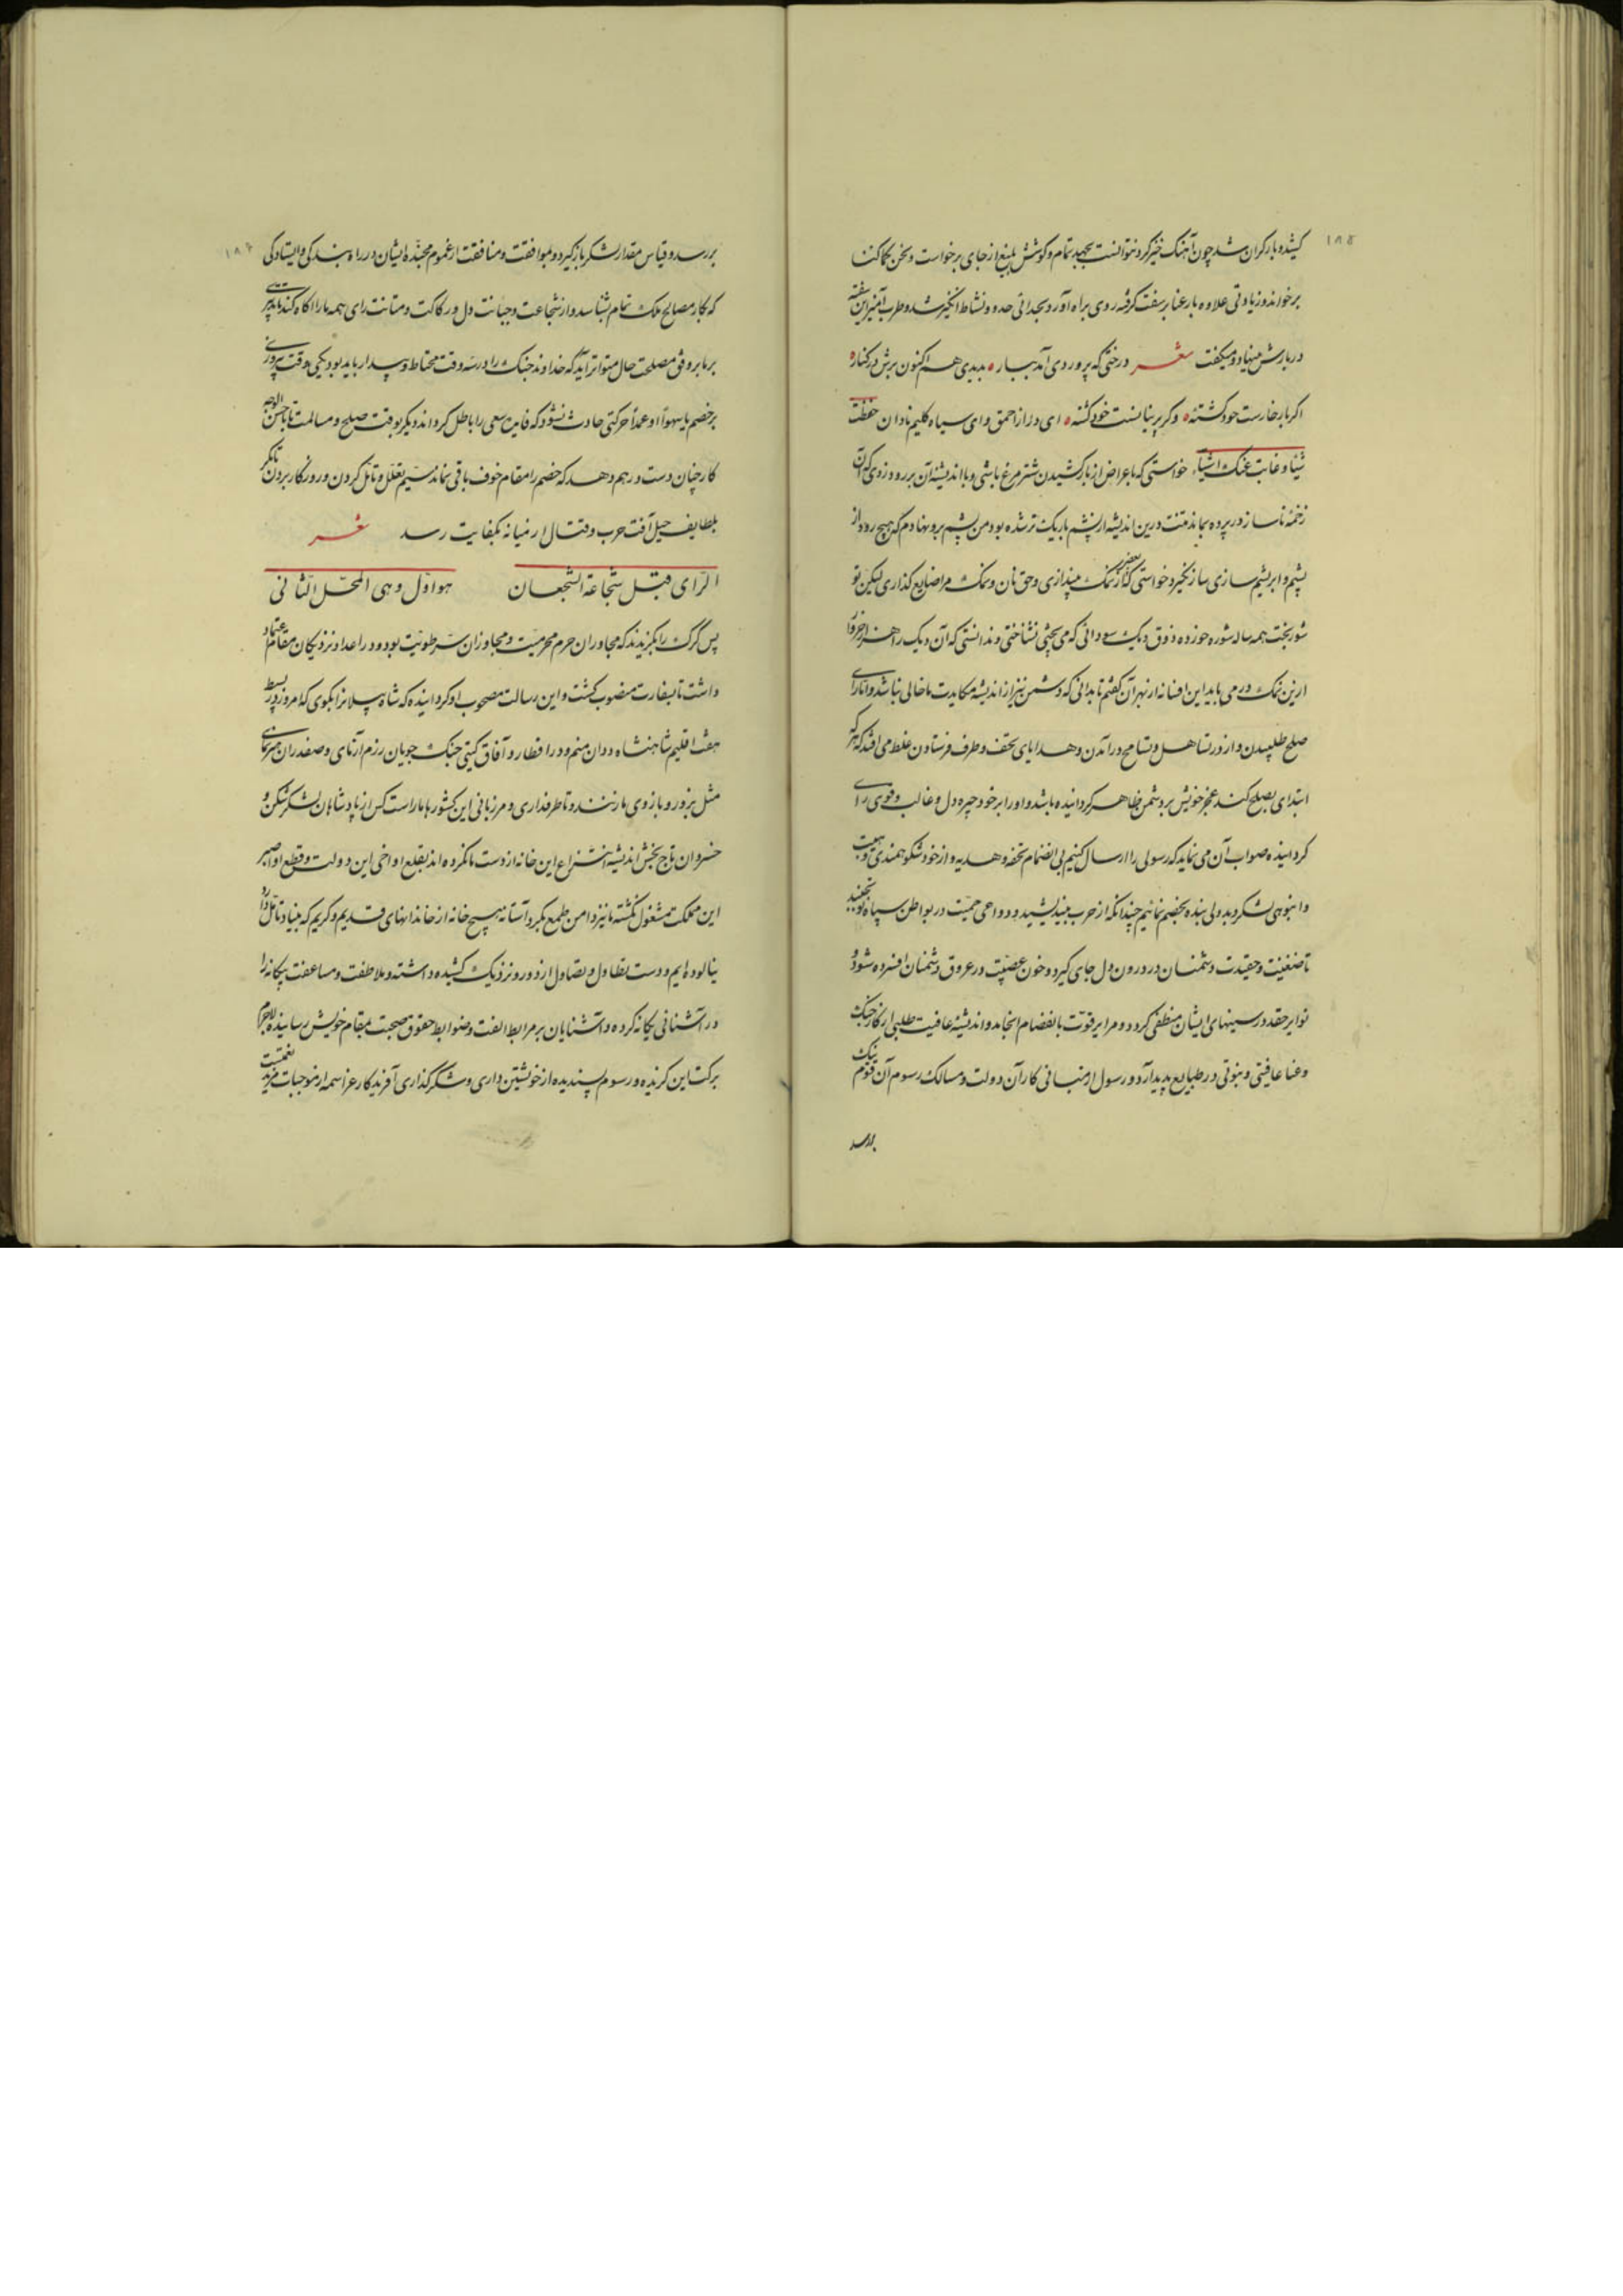 ۱۸۵
کشیده و بار کران شد چون آهنک خیز کرد نتوانست بجهد تمام و کوشش بلیغ از جای برخاست
برخواند و زیادتی علاوه بار عنا بر سفت کرفته روی براه آورد و نشاط انکیز شد و طرب آمیز این سفته
در بارش مینهاد و میکفت شعر درختی که پروردی آمد ببار ۰ بدیدی هم اکنون برش در کنار ۰
اکر بار خارست خود کشتهٔ ۰ وکر پرنیانست خود رشتهٔ ۰ ای دراز احمق و ای سیاه کلیم نادان حفظت
شیئا و غابت عنک اشیاء خواستی که باعراض از بار کشیدن شتر مرغ باشی و با اندیشهٔ آن بر رود زدی که آن
زخمهٔ ناساز در پرده بماند منت درین اندیشه از پشم باریک تر شده بود من پشم برو نهادم که هیچ رود از
پشم و ابریشم سازی ساز نکیرد خواستی که از نمک بیندازی و حق نان و نمک مرا ضایع کذاری لیکن تو
شوربخت همه ساله شوره خورده ذوق دیک سودائی که می پختی نشناختی و ندانستی که آن دیک را
ازین نمک در می باید این افسانه از بهر آن کفتم تا بدانی که دشمن نیز از اندیشه مکایدت ما خالی نباشد و اما رای
صلح طلبیدن و از در تساهل و تسامح درآمدن و هدایای تحف و طرف فرستادن غلط می افتد که هر که
ابتدای بصلح کند عجز خویش بر دشمن ظاهر کردانیده باشد و او را بر خود چیره دل و غالب و قوی رای
کردانیده صواب آن می نماید که رسولی را ارسال کنیم بی انضمام تحفه و هدیه و از خود شکوهمندی و هیبت
و انبوهی لشکر و بد دلی بنده بخصم نمائیم چندانکه از حرب بیندیشد و دواعی حمیت در بواطن سپاه او نجنبد
تا ضغینت و حقیدت دشمنان در درون دل جای کیرد و خون عصبیت در عروق دشمنان افسرده شود و
نوایر حقد در سینهای ایشان منطفی کردد و مرایر قوت بانفصام انجامد و اندیشهٔ عافیت طلبی از کار جنک
و عنا عافیتی و نبوتی در طبایع پدید آرد و رسول از مبانی کار آن دولت و مسالک رسوم آن قوم نیک
بررسد
۱۸۶
بررسد و قیاس مقدار لشکر بازکیرد و موافقت و منافقت از عموم مجندهٔ ایشان در راه بندکی و ایستادکی
که بکار مصالح ملک تمام بشناسد و از شجاعت و جبانت دل و رکاکت و متانت رای همه ما را آکاه کند
بر ما بر وفق مصلحت حال متواتر آید که خداوند جنک را در سه وقت محتاط و بیدار باید بود یکی وقت پیروزی
بر خصم تا سهوا او عمدا حرکتی حادث نشود که فایت سعی را باطل کرداند دیکر بوقت صلح و مسالمت تا باحسن الوجه
کار چنان دست در هم دهد که خصم را مقام خوف باقی نماند سیم تعلل و تأمل کردن و روزکار بردن تا مکر
بلطایف حیل آفت حرب و قتال از میانه بکفایت رسد شعر
الرای قبل شجاعة الشجعان هو اول وهی المحل الثانی
پس کرک را بکزیدند که مجاوران حرم محرمیت و مجاوزان سر طویت بود و در اعداد نزدیکان مقام اعتماد
داشت تا بسفارت منصوب کشت و این رسالت مصحوب او کردانیده که شاه پیلانرا بکوی که امروز در بسط
هفت اقلیم شاهنشاه ددان منم و در اقطار و آفاق کیتی جنک جویان رزم آزمای و صفدران هنرنمای
مثل بزور و بازوی ما زنند و تا طرفداری و مرزبانی این کشورها ما راست کس از پادشاهان لشکرشکن و
خسروان تاج بخش اندیشه انتزاع این خانه از دست ما نکرده اند بقلع اواخی این دولت و قطع اواصر
این مملکت مشغول نکشته ما نیز دامن طمع بکرد آستانه هیچ خانه از خاندانهای قدیم و کریم که بنیاد
نیالوده ایم و دست تطاول و تصاول از دور و نزدیک کشیده داشته و ملاطفت و مساعفت بیکانه را
در آشنائی یکانه کرده و آشنایان بر مرابط الفت و ضوابط حقوق صحبت بمقام خویش رسانیده لاجرم
برکت این کزیده و رسوم پسندیده از خویشتن داری و شکرکذاری آفریدکار عز اسمه از موجبات مزید نعمتست